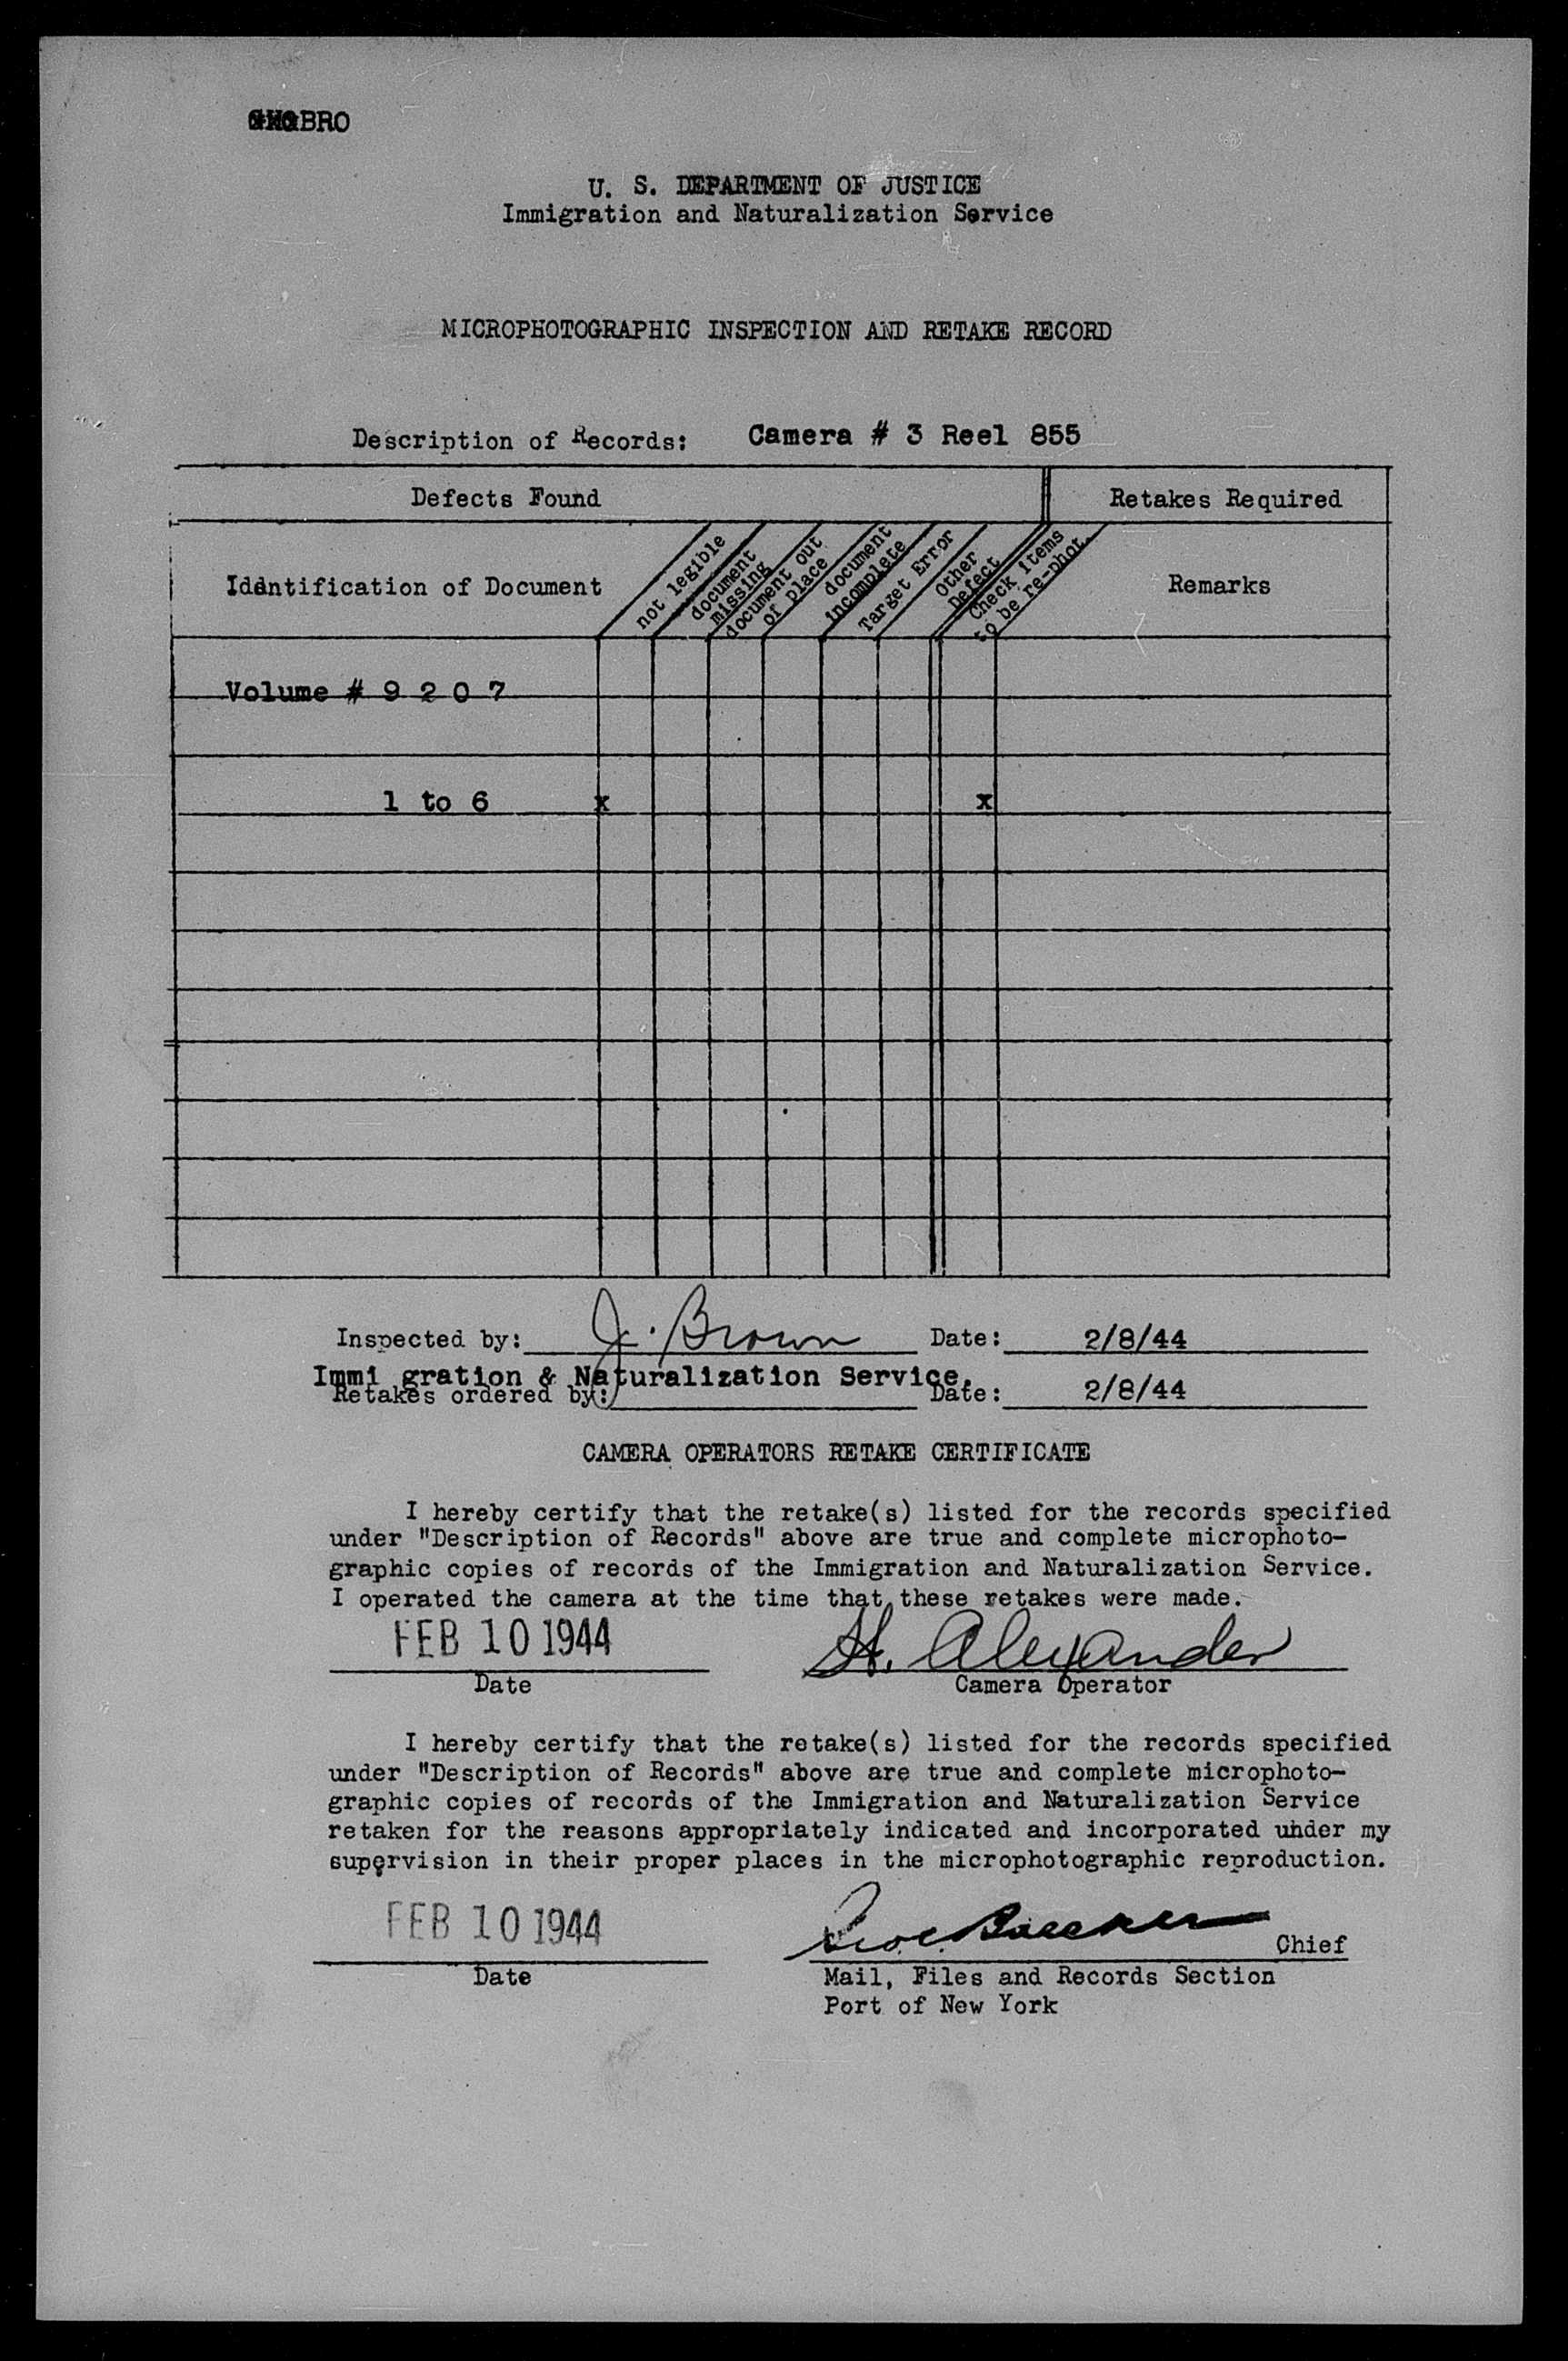 BRO
U. S. DEPARTMENT OF JUSTICE
Immigration and Naturalization Service
MICROPHOTOGRAPHIC INSPECTION AND RETAKE RECORD
Description of Records: Camera # 3 Reel 855
Defects Found Retakes Required
Iddntification of Document
not legible
document
missing
document out
of place
document
incomplete
Target Error
Other
Defect
Check items
to be re-phot.
Remarks
Volume # 9 2 0 7
1 to 6 x x
Inspected by: J. Brown Date: 2/8/44
Immi gration & Naturalization Service.
Retakes ordered by: Date: 2/8/44
CAMERA OPERATORS RETAKE CERTIFICATE
I hereby certify that the retake(s) listed for the records specified
under "Description of Records" above are true and complete microphoto-
graphic copies of records of the Immigration and Naturalization Service.
I operated the camera at the time that these retakes were made.
FEB 10 1944 H. Alexander
Date Camera Operator
I hereby certify that the retake(s) listed for the records specified
under "Description of Records" above are true and complete microphoto-
graphic copies of records of the Immigration and Naturalization Service
retaken for the reasons appropriately indicated and incorporated under my
supervision in their proper places in the microphotographic reproduction.
FEB 10 1944 Chief
Date Mail, Files and Records Section
Port of New York